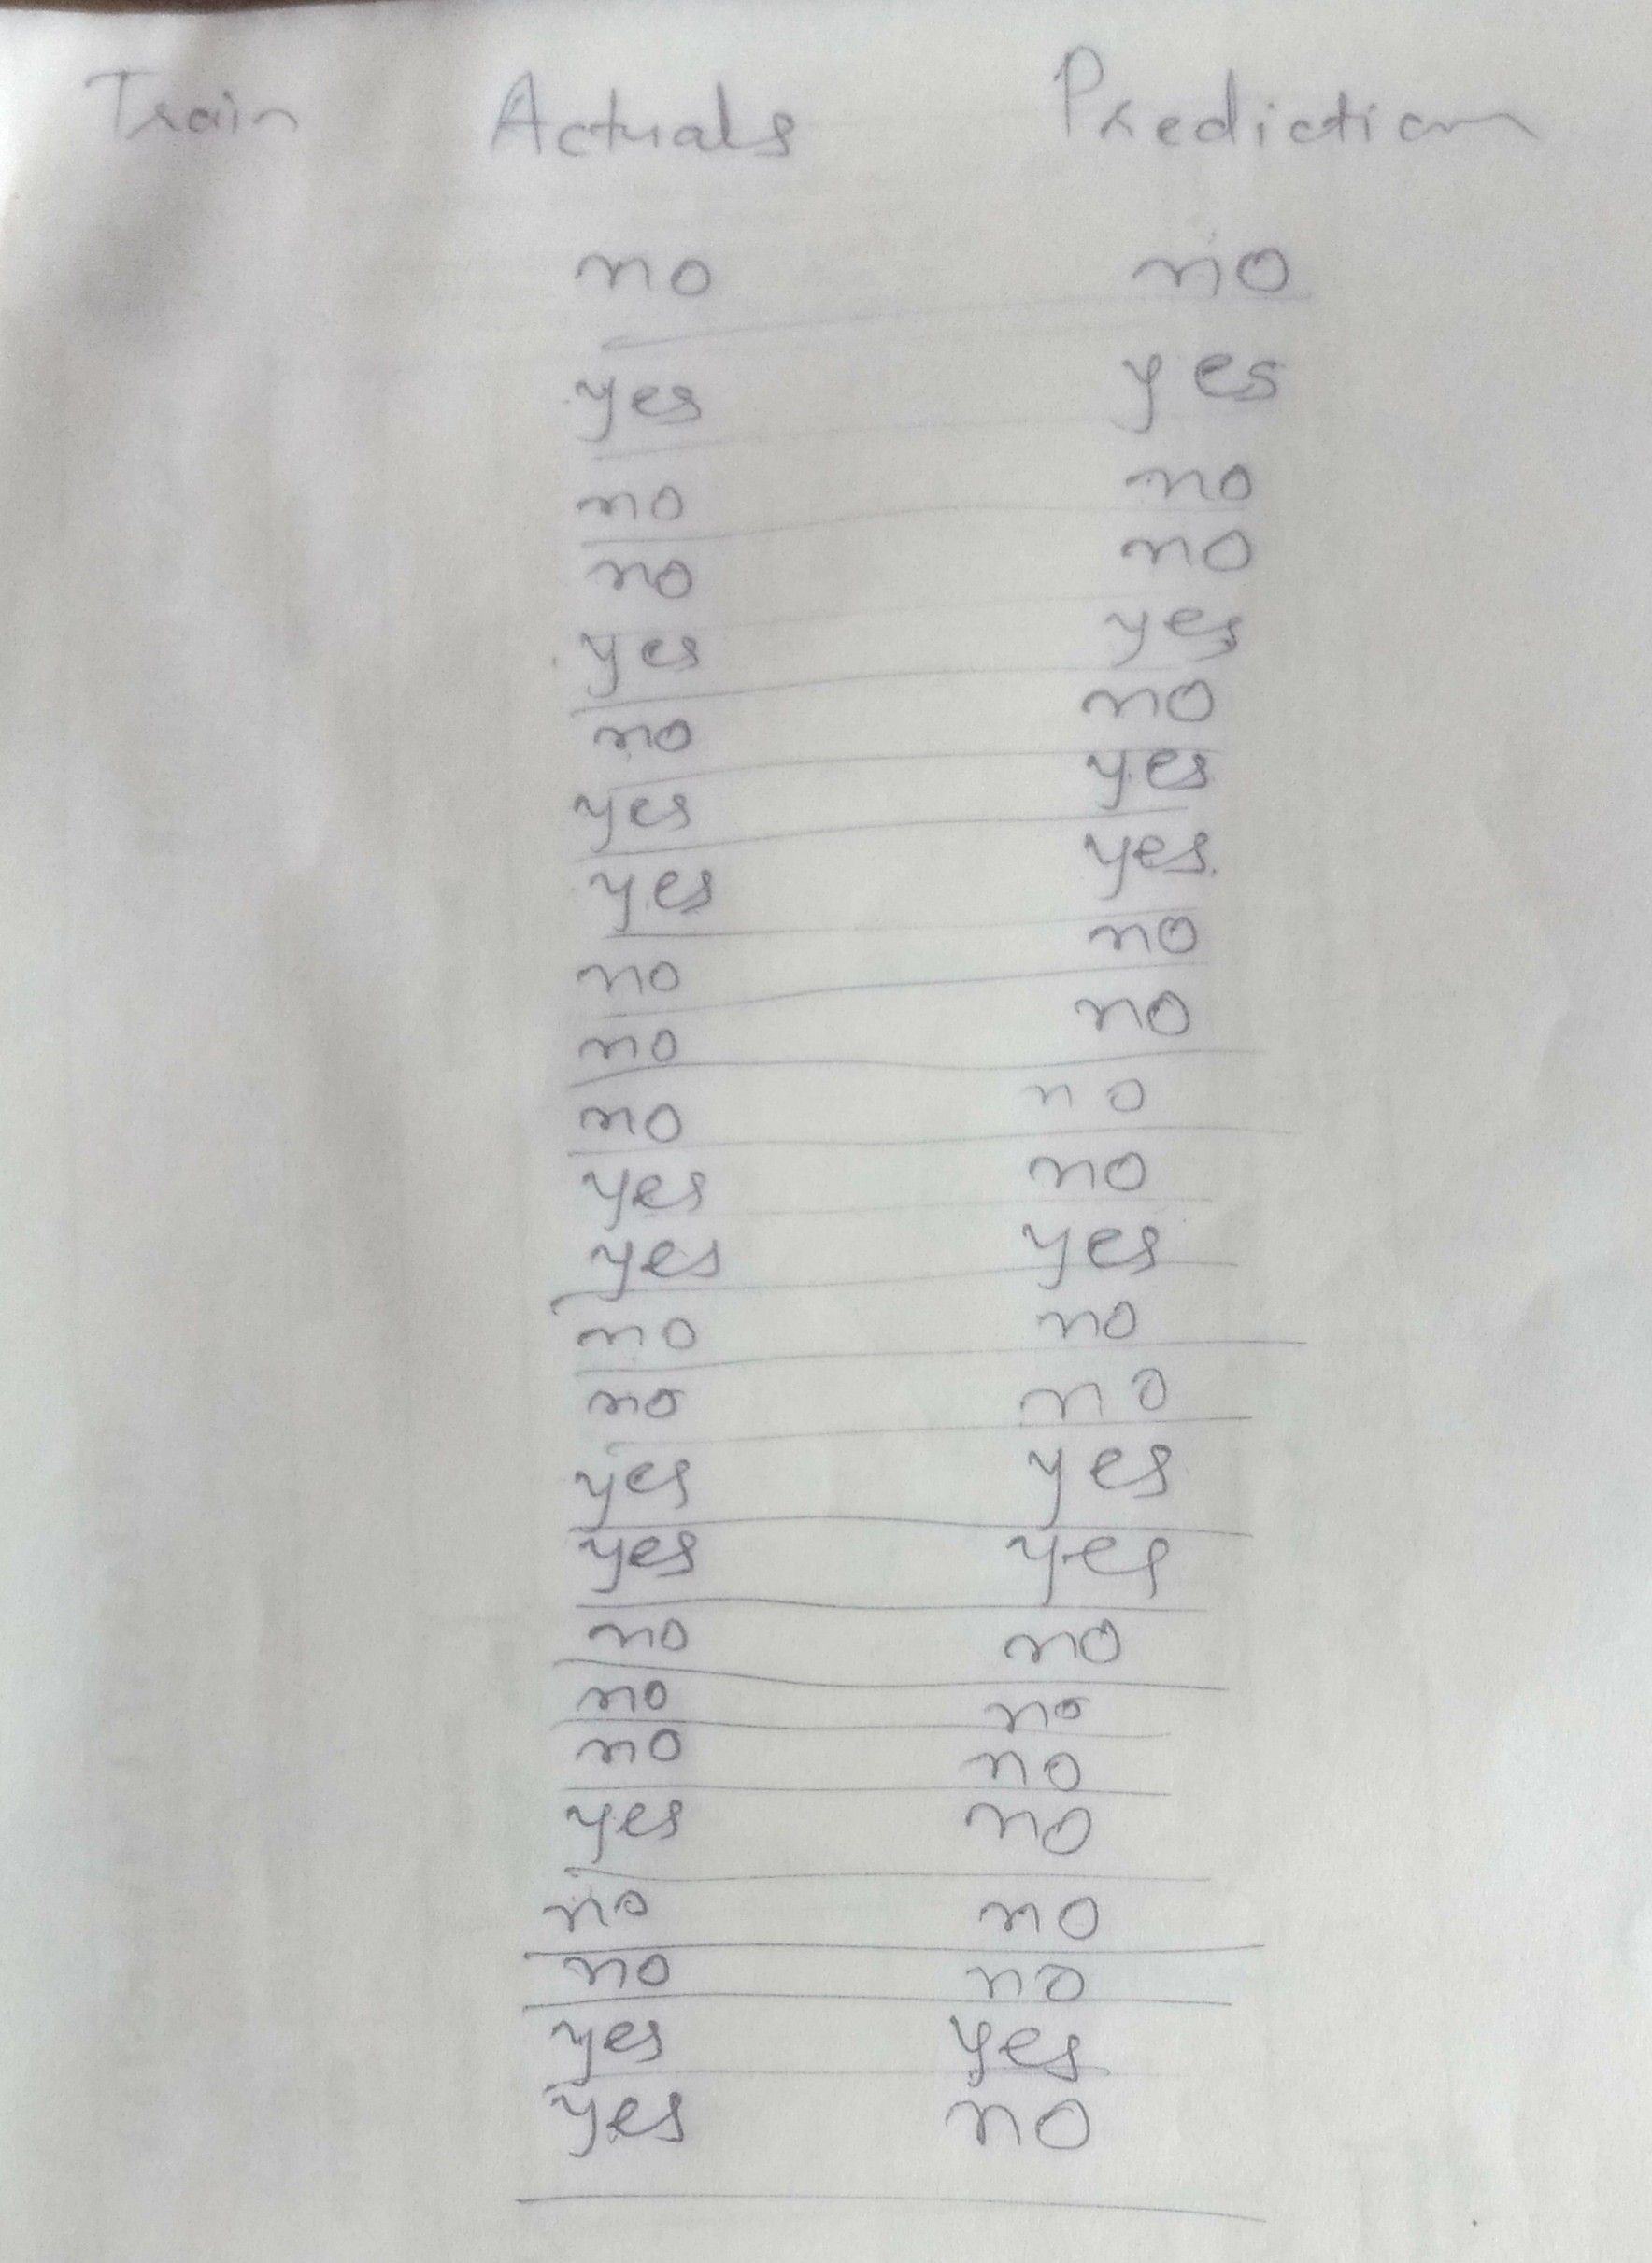 Train Actuals Prediction
no no
yes yes
no no
no no
yes yes
no no
yes yes
yes yes
no no
no no
no no
yes no
yes yes
no no
no no
yes yes
yes yes
no no
no no
no no
yes no
no no
no no
yes yes
yes no